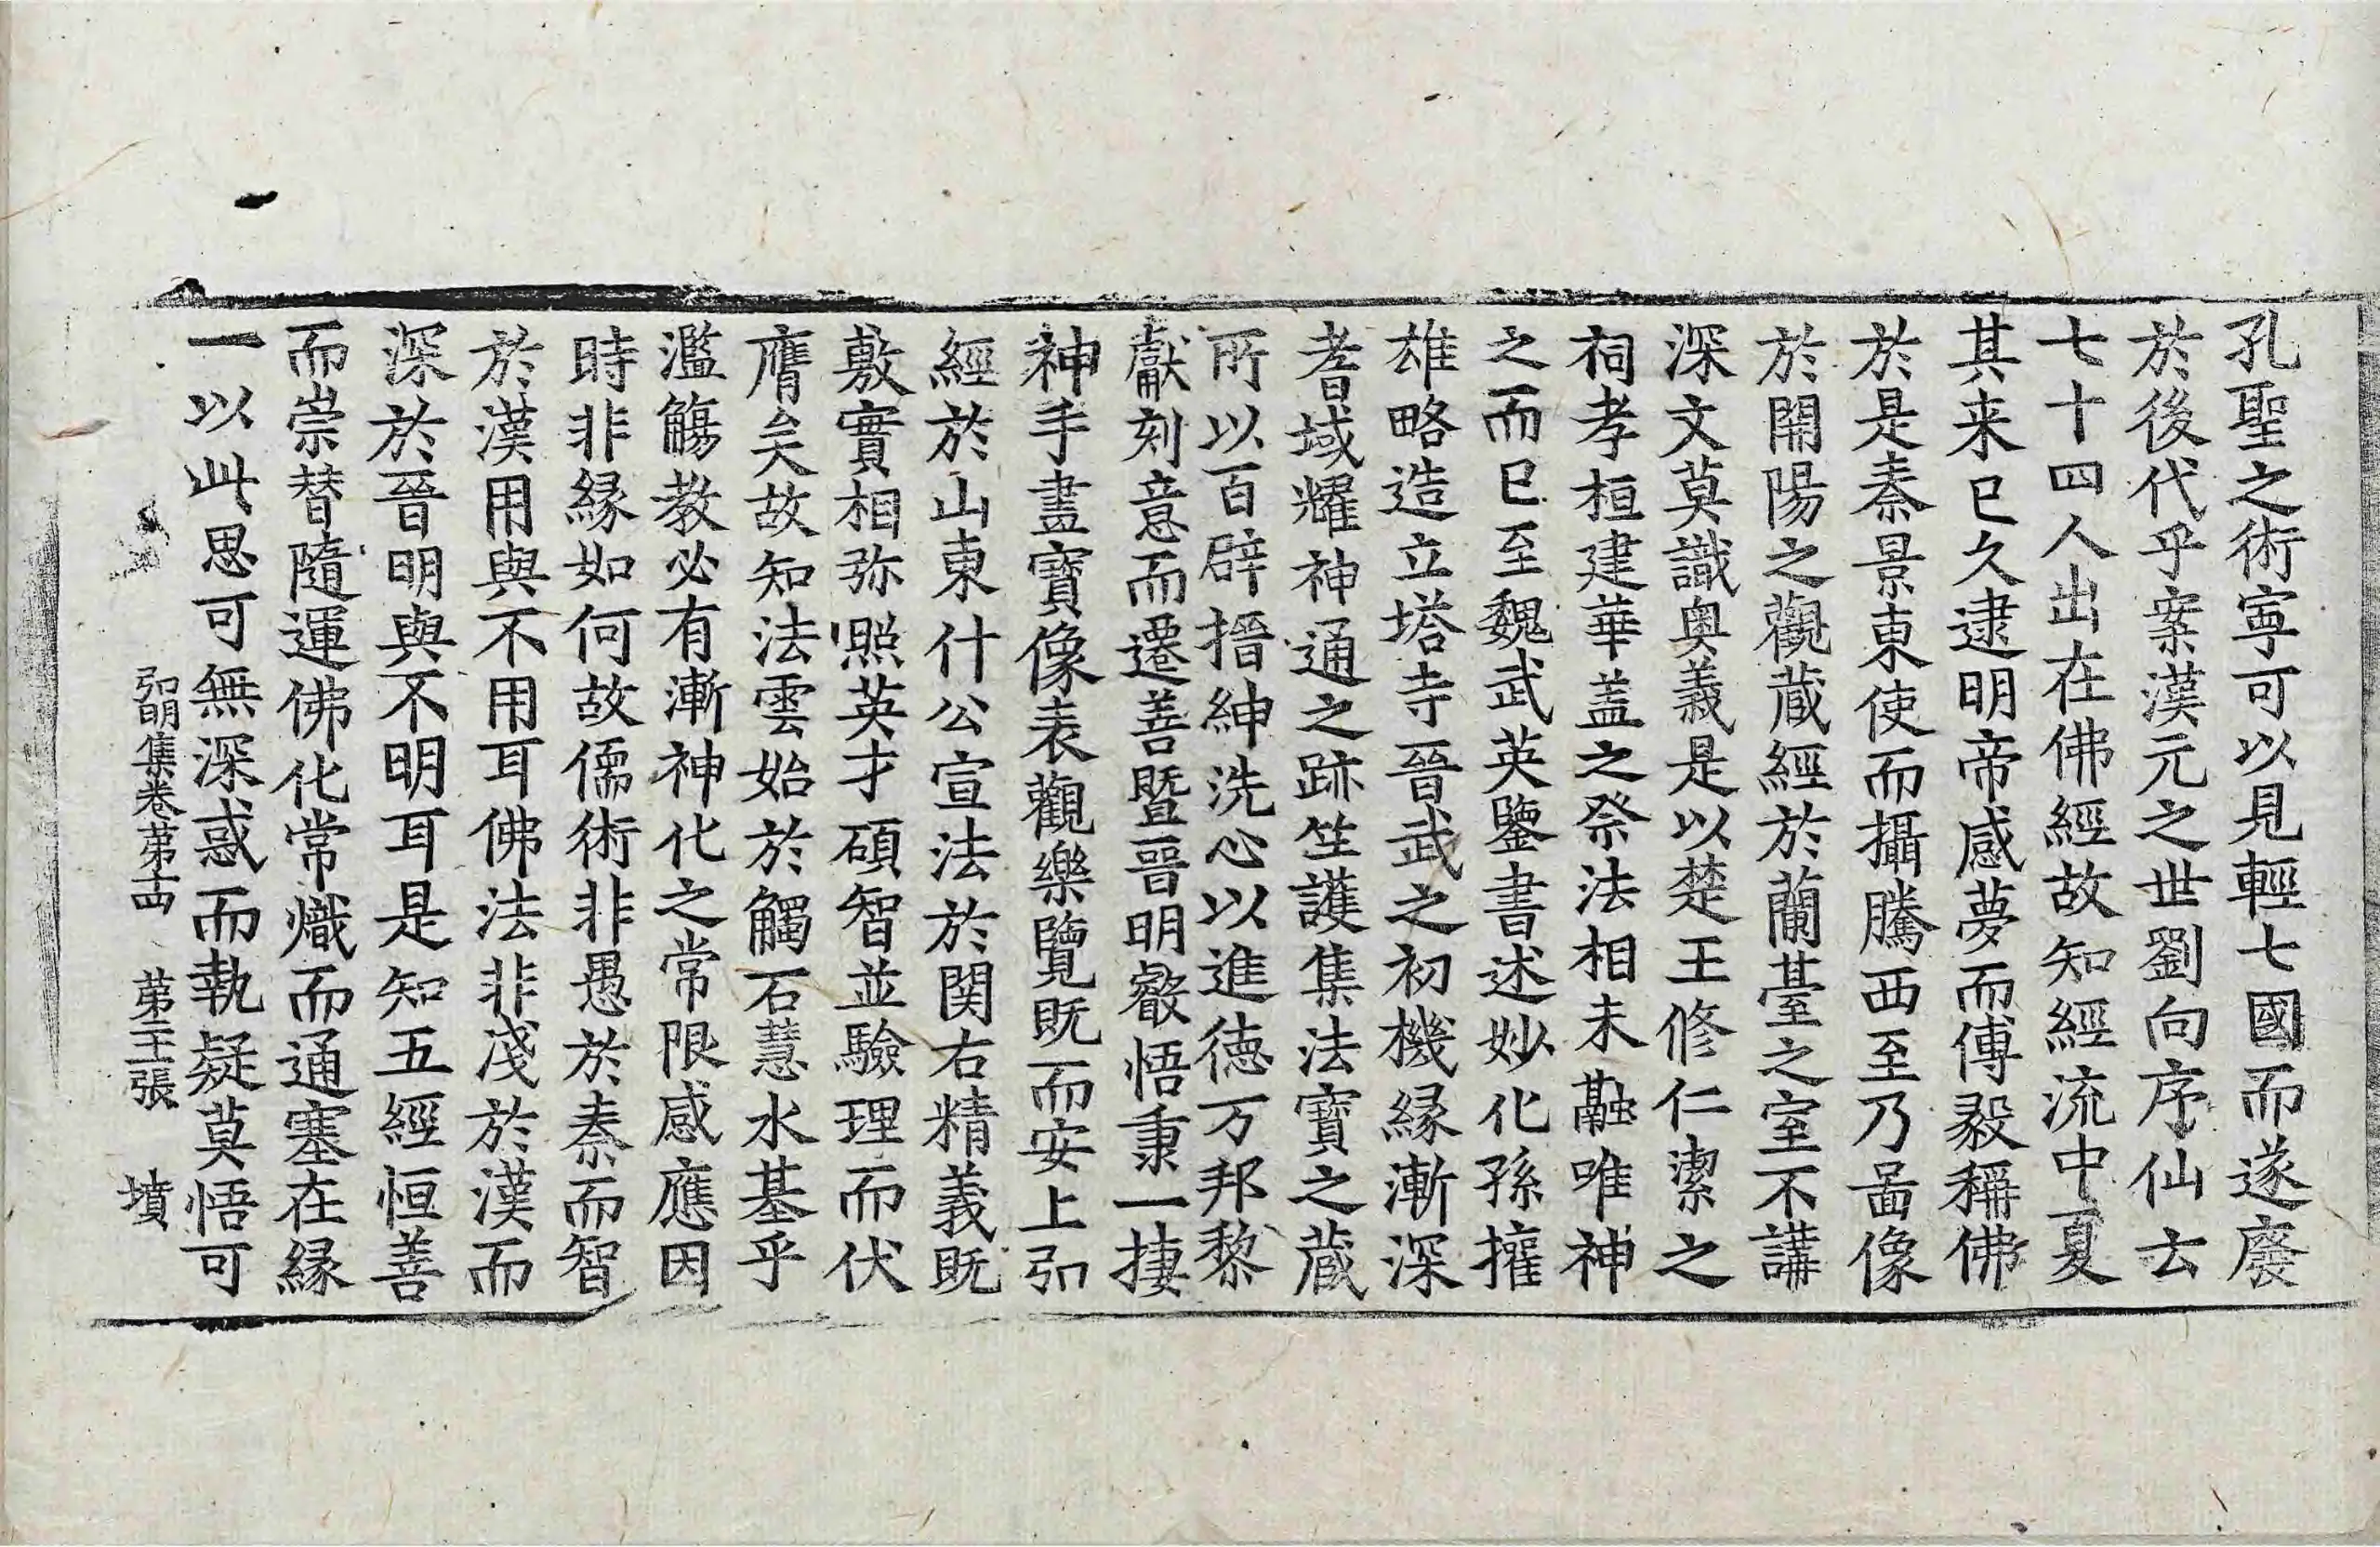 孔聖之術寜可以見輕七國而遂廢
於後代乎案漢元之世劉向序仙云
七十四人出在佛經故知經流中夏
其来已久逮明帝感夢而傅毅稱佛
於是秦景東使而攝騰西至乃啚像
於開陽之觀蔵經於蘭臺之室不講
深文莫識奥義是以楚王修仁潔之
祠孝桓建華盖之祭法相未融唯神
之而已至魏武英鑒書述妙化孫權
雄略造立塔寺晉武之初機縁漸深
耆域耀神通之跡竺護集法寶之蔵
所以百辟搢紳洗心以進德万邦黎
獻刻意而遷善暨晉明叡悟秉一捿
神手畫寶像表觀樂覽既而安上弘
經於山東什公宣法於関右精義既
敷實相弥照英才碩智並驗理而伏
膺矣故知法雲始於觸石慧水基乎
濫觴教必有漸神化之常限感應因
時非縁如何故儒術非愚於秦而智
於漢用與不用耳佛法非淺於漢而
深於晉明與不明耳是知五經恒善
而崇替隨運佛化常熾而通塞在縁
一以此思可無深惑而執疑莫悟可
弘明集卷第十四 第二十張 墳